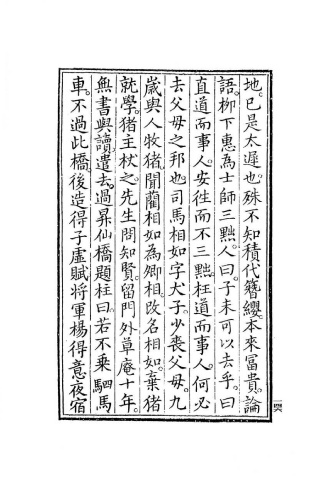 地。已是太遲也。殊不知積代簪纓。本來冨貴。論
語。栁下惠為士師三黜。人曰。子未可以去乎。曰
直道而事人。安徃而不三黜。枉道而事人。何必
去父母之邦也。司馬相如字犬子。少喪父母。九
歲與人牧猪。聞藺相如為卿相。改名相如。棄猪
就學。猪主杖之。先生問知賢。留門外草庵十年。
無書與讀。遣去。過昇仙橋題柱曰。若不乗駟馬
車。不過此橋。後造得子虛賦。将軍楊得意夜宿